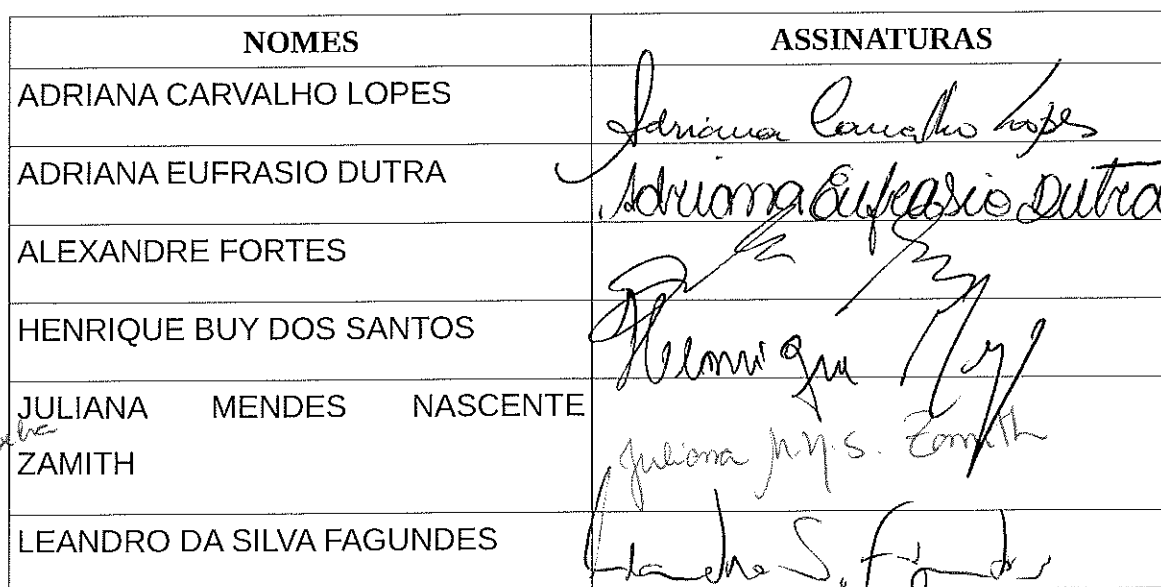 NOMES ASSINATURAS
ADRIANA CARVALHO LOPES Adriana Carvalho Lopes
ADRIANA EUFRASIO DUTRA Adriana Eufrasio Dutra
ALEXANDRE FORTES
HENRIQUE BUY DOS SANTOS Henrique Buy
JULIANA MENDES NASCENTE
ZAMITH Juliana M.N.S. Zamith
LEANDRO DA SILVA FAGUNDES Leandro S. Fagundes